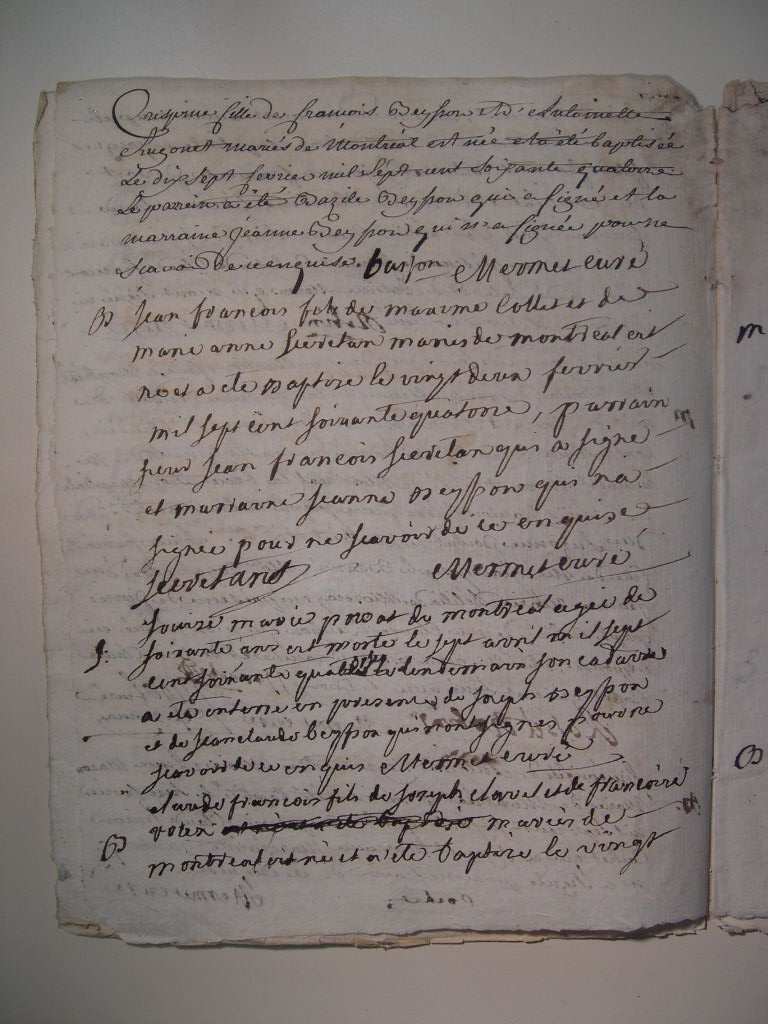 Crispine fille de francois Beysson et d'Antoinette
hugonet mariés de Montréal est née et a été baptisée
Le dix sept fevrie mil sept cent soixante quatorze
Le parein a été Bazile Beysson qui a signé et la
marraine jéanne Beysson qui n'a signée pour ne
scavoir de ce enquise. baisson Mermet curé
B jean francois fils de maxime Collet et de
marie anne secretan maries de montreal est
né et a ete Baptise le vingt deux fevrier
mil sept cent soixante quatorze, parrain
sieur jean francois secretan qui a signé
et marraine jeanne Beysson qui na
signée pour ne scavoir de ce enquise
secretand Mermet curé
S: Louise marie privat de montreal agée de
soixante ans est morte le sept avril mil sept
cent soixante quatorze le lendemain son cadavre
a ete enterré en presence de joseph Beysson
et de jean claude beysson qui n'ont signés pour ne
scavoir de ce enquis Mermet curé
claude francois fils de joseph clavel et de francoise
B est né et a ete baptisé mariés de
montreal est né et a ete baptise le vingt